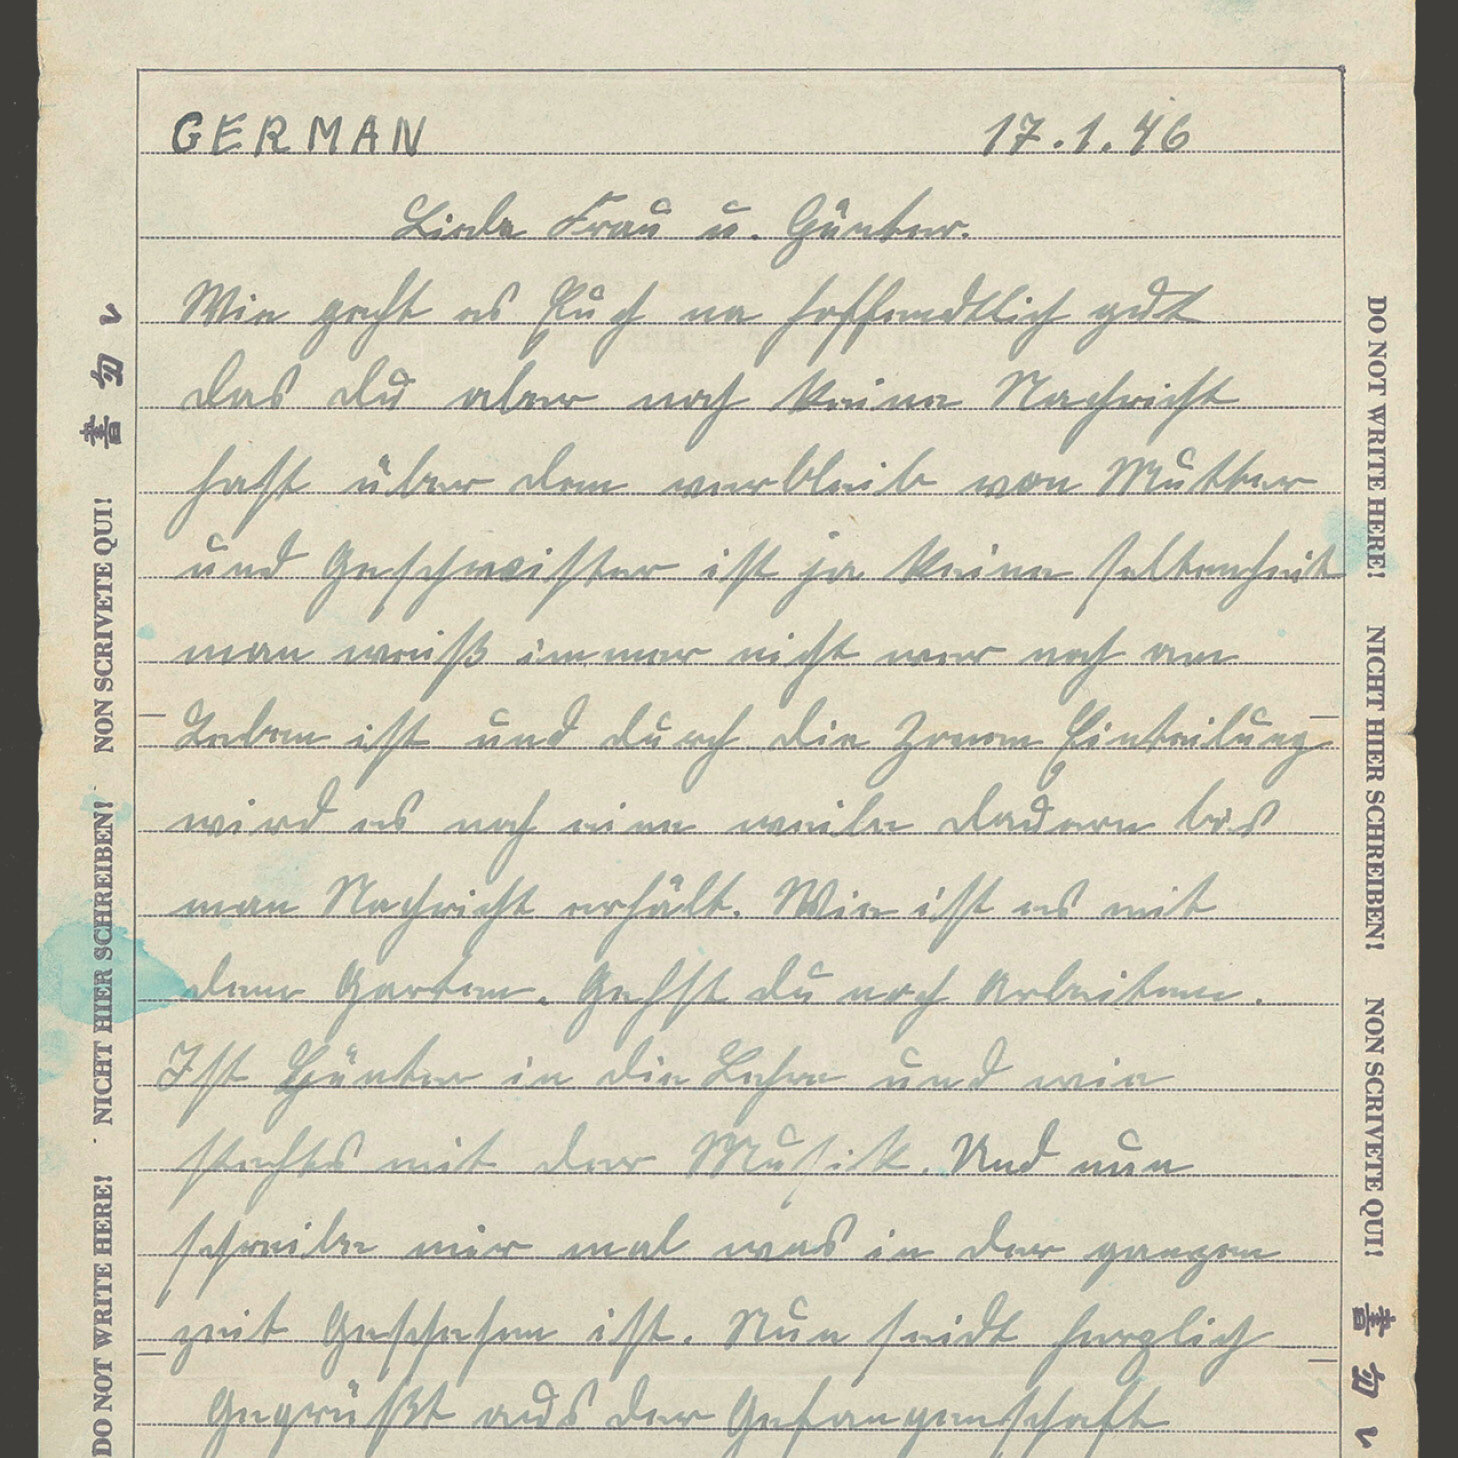 GERMAN 17.1.46
Liebe Frau u. Günter.
Wie geht es Euch na hoffendtlich gut
das du aber noch keine Nachricht
hast über dem verbleib von Mutter
und Geschwister ist ja keine seltenheit
man weiß immer nicht wer noch am
Leben ist und durch die Zonen Einteilung
wird es noch eine weile dauern bis
man Nachricht erhält. Wie ist es mit
dem Garten. Gehst du noch Arbeiten.
Ist Günter in die Lehre und wie
stehts mit der Musik. Und nun
schreibe mir mal was in der ganzen
zeit Geschehen ist. Nun seidt herzlich
Gegrüßt aus der Gefangenschaft
DO NOT WRITE HERE! NICHT HIER SCHREIBEN! NON SCRIVETE QUI! 書勿レ
DO NOT WRITE HERE! NICHT HIER SCHREIBEN! NON SCRIVETE QUI! 書勿レ